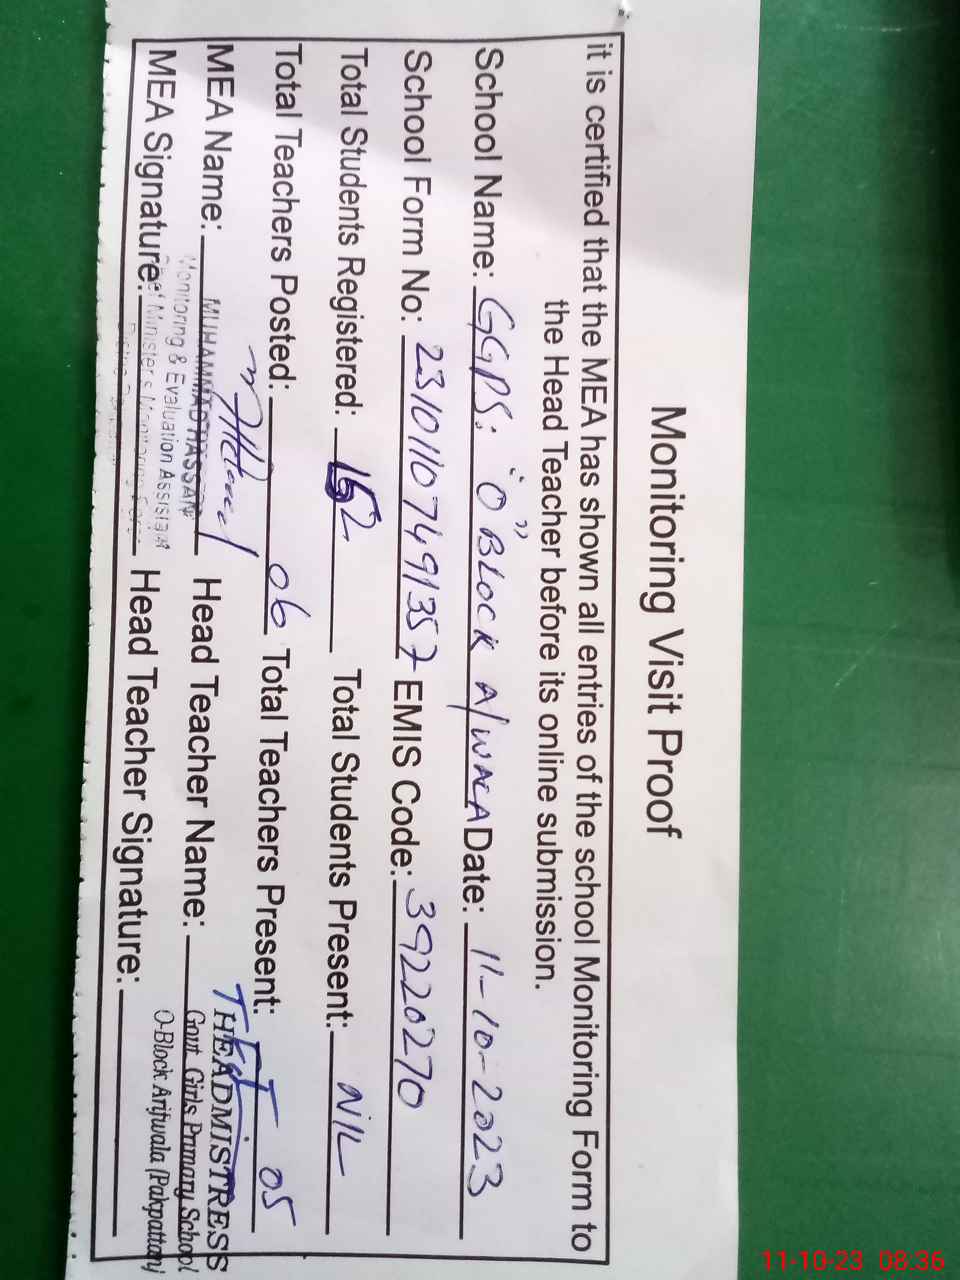 Monitoring Visit Proof
it is certified that the MEA has shown all entries of the school Monitoring Form to
the Head Teacher before its online submission.
School Name: GGPS: "O" BLOCK A/WALA Date: 11-10-2023
School Form No: 23101107491357 EMIS Code: 39220270
Total Students Registered: 152 Total Students Present: NIL
Total Teachers Posted: 06 Total Teachers Present: 05
MEA Name: MUHAMMAD HASSAN Head Teacher Name: HEADMISTRESS
Monitoring & Evaluation Assistant Govt Girls Primary School
MEA Signature: Chief Minister's Monitoring Force Head Teacher Signature: O-Block Arifwala (Pakpattan)
11-10-23 08:36